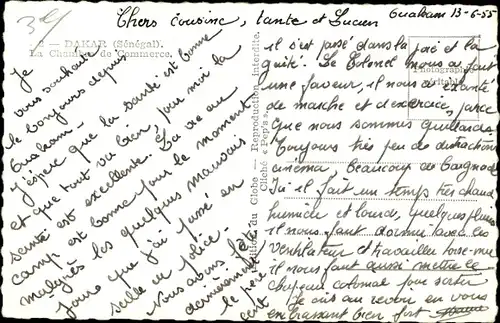 Chers cousine, tante et Lucien
Ouakam 13-6-55
2 - DAKAR (Sénégal).
La Chambre de Commerce.
Je
vous souhaite
le bonjours depuis
Ouakam -
J'espère que la santé est bonne
et que tout va bien, pour moi la
santé est excellente. La vie au
camp est bonne pour le moment
malgrés les quelques mauvais
jours que j'ai passé en
salle de police.
Nous avons fêté
dernièrement
le
cent
Éditions du Globe. - Reproduction interdite.
Cliché « Pep's »
Photographie
Véritable
il s'est passé dans la joie et la
guité. Le Colonel nous a fait
une faveur, il nous a exanté
de marche et d'exercices, parce
que nous sommes
Toujours très peu de distractions
cinéma, Beaucoup de baignade
Ici il fait un temps très chaud
humide et lourd, quelques pluies
il nous faut dormir avec le
ventilateur et travailler torse-nu
il nous faut aussi mettre le
chapeau colonial pour sortir
Je dis au revoir en vous
embrassant bien fort